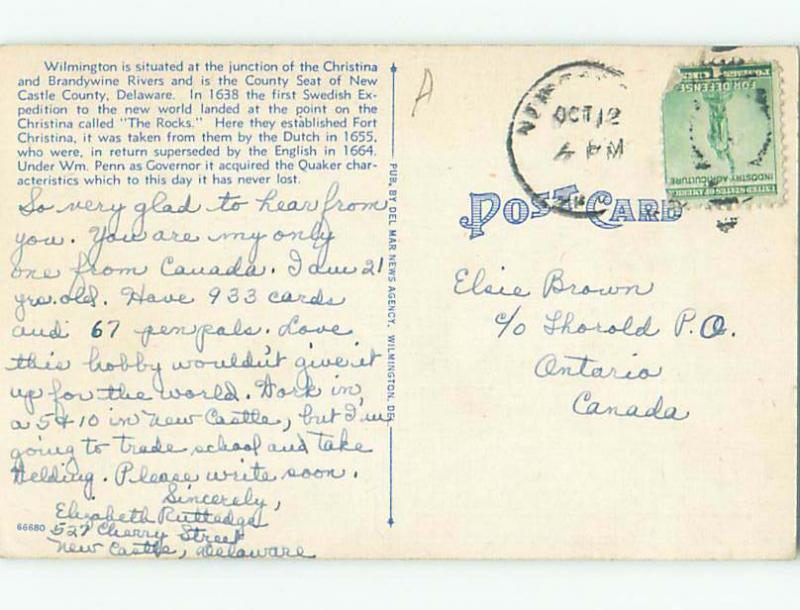 Wilmington is situated at the junction of the Christina
and Brandywine Rivers and is the County Seat of New
Castle County, Delaware. In 1638 the first Swedish Ex-
pedition to the new world landed at the point on the
Christina called "The Rocks." Here they established Fort
Christina, it was taken from them by the Dutch in 1655,
who were, in return superseded by the English in 1664.
Under Wm. Penn as Governor it acquired the Quaker char-
acteristics which to this day it has never lost.
So very glad to hear from
you. You are my only
one from Canada. I am 21
yrs. old. Have 933 cards
and 67 penpals. Love
this hobby wouldn't give it
up for the world. Work in
a 5 & 10 in New Castle, but I'm
going to trade school and take
Welding. Please write soon.
Sincerely,
Elizabeth Rutledge
527 Cherry Street
New Castle, Delaware
66680
PUB. BY DEL MAR NEWS AGENCY, WILMINGTON, DE
A
OCT 12
4 PM
1
FOR DEFENSE
INDUSTRY AGRICULTURE
UNITED STATES OF AMERICA
POST CARD
Elsie Brown
c/o Thorold P.O.
Ontario
Canada